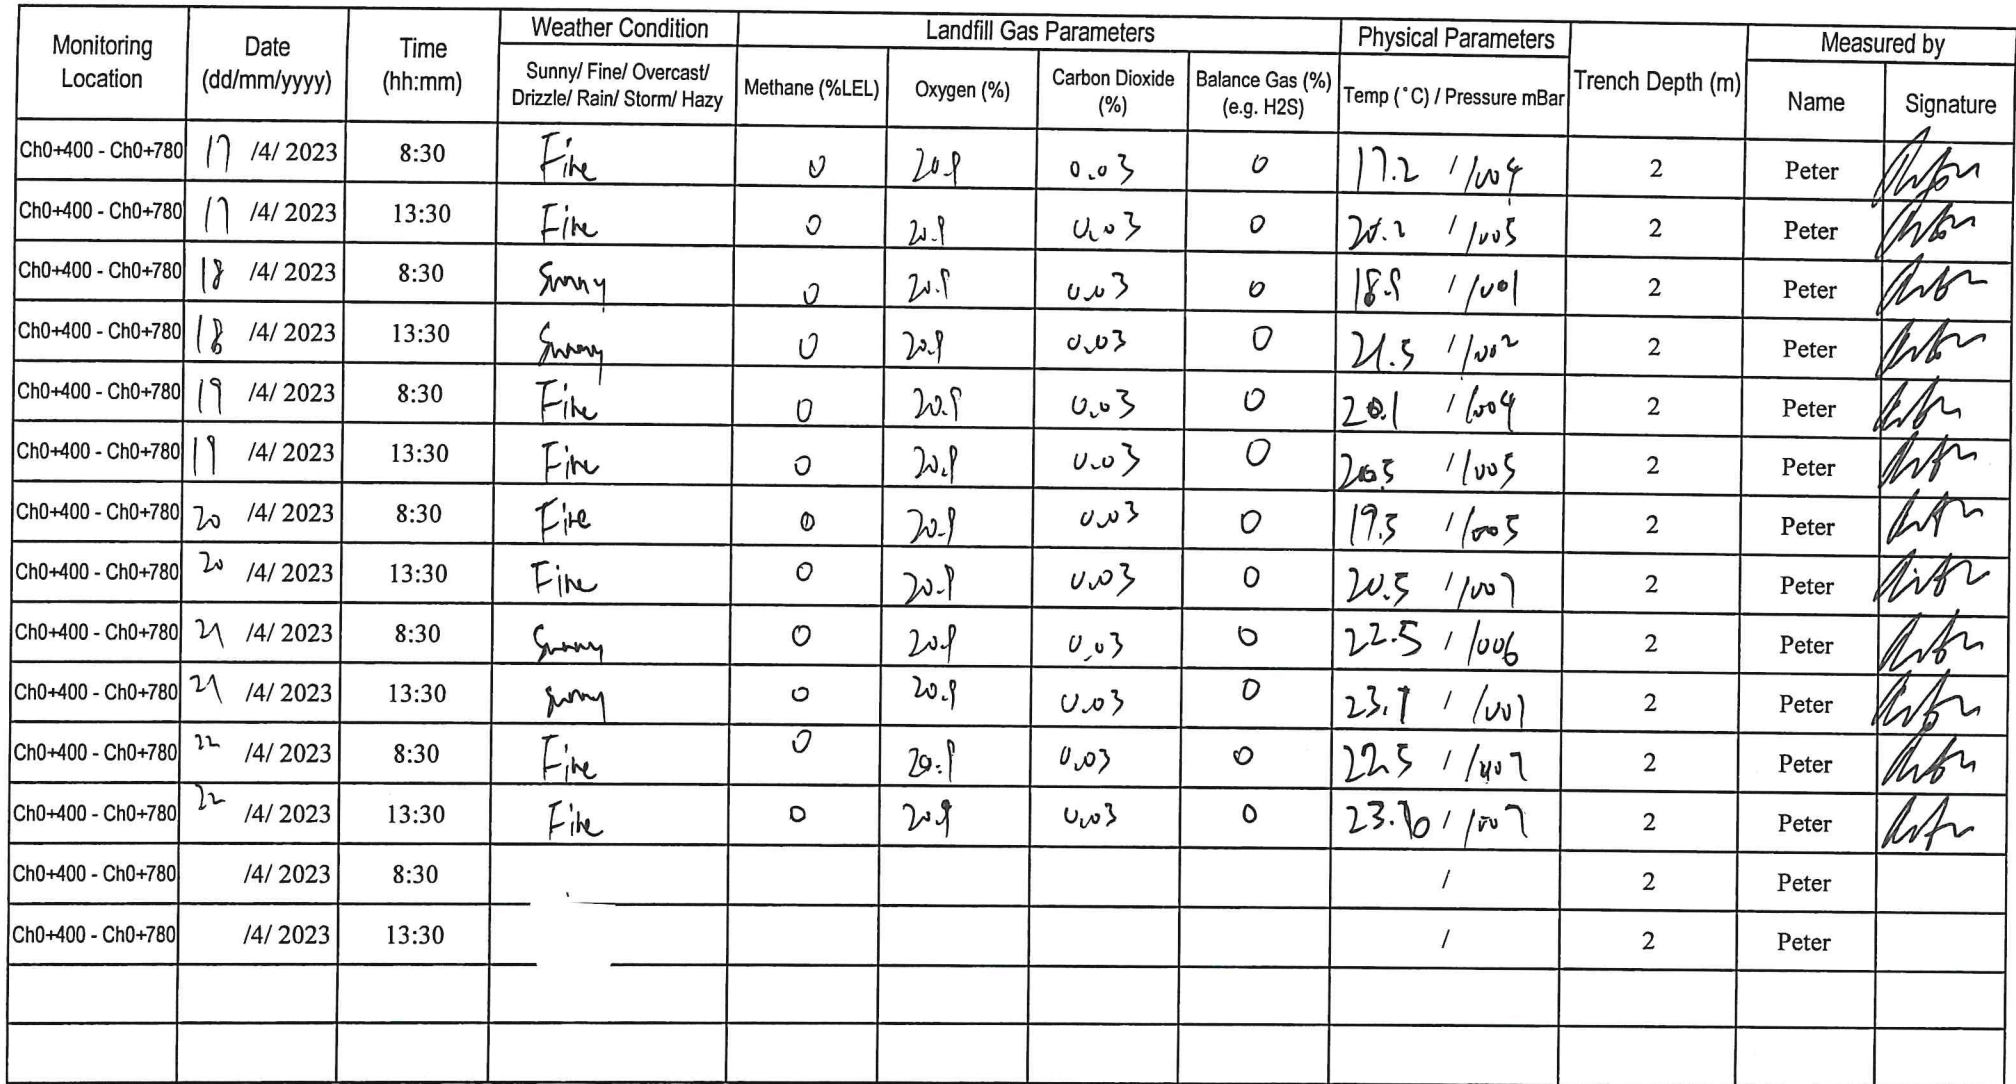 Monitoring Location | Date (dd/mm/yyyy) | Time (hh:mm) | Weather Condition | Landfill Gas Parameters | Physical Parameters | Trench Depth (m) | Measured by
Sunny/ Fine/ Overcast/ Drizzle/ Rain/ Storm/ Hazy | Methane (%LEL) | Oxygen (%) | Carbon Dioxide (%) | Balance Gas (%) (e.g. H2S) | Temp (°C) / Pressure mBar | Name | Signature
Ch0+400 - Ch0+780 | 17 /4/ 2023 | 8:30 | Fine | 0 | 20.9 | 0.03 | 0 | 17.2 / 1004 | 2 | Peter
Ch0+400 - Ch0+780 | 17 /4/ 2023 | 13:30 | Fine | 0 | 20.9 | 0.03 | 0 | 20.2 / 1005 | 2 | Peter
Ch0+400 - Ch0+780 | 18 /4/ 2023 | 8:30 | Sunny | 0 | 20.9 | 0.03 | 0 | 18.9 / 1001 | 2 | Peter
Ch0+400 - Ch0+780 | 18 /4/ 2023 | 13:30 | Sunny | 0 | 20.9 | 0.03 | 0 | 21.5 / 1002 | 2 | Peter
Ch0+400 - Ch0+780 | 19 /4/ 2023 | 8:30 | Fine | 0 | 20.9 | 0.03 | 0 | 20.1 / 1004 | 2 | Peter
Ch0+400 - Ch0+780 | 19 /4/ 2023 | 13:30 | Fine | 0 | 20.9 | 0.03 | 0 | 20.5 / 1005 | 2 | Peter
Ch0+400 - Ch0+780 | 20 /4/ 2023 | 8:30 | Fine | 0 | 20.9 | 0.03 | 0 | 19.5 / 1005 | 2 | Peter
Ch0+400 - Ch0+780 | 20 /4/ 2023 | 13:30 | Fine | 0 | 20.9 | 0.03 | 0 | 20.5 / 1007 | 2 | Peter
Ch0+400 - Ch0+780 | 21 /4/ 2023 | 8:30 | Sunny | 0 | 20.9 | 0.03 | 0 | 22.5 / 1006 | 2 | Peter
Ch0+400 - Ch0+780 | 21 /4/ 2023 | 13:30 | Sunny | 0 | 20.9 | 0.03 | 0 | / | 2 | Peter
Ch0+400 - Ch0+780 | 22 /4/ 2023 | 8:30 | Fine | 0 | 20.9 | 0.03 | 0 | 22.5 / 1007 | 2 | Peter
Ch0+400 - Ch0+780 | 22 /4/ 2023 | 13:30 | Fine | 0 | 20.9 | 0.03 | 0 | / 1007 | 2 | Peter
Ch0+400 - Ch0+780 | /4/ 2023 | 8:30 | / | 2 | Peter
Ch0+400 - Ch0+780 | /4/ 2023 | 13:30 | / | 2 | Peter